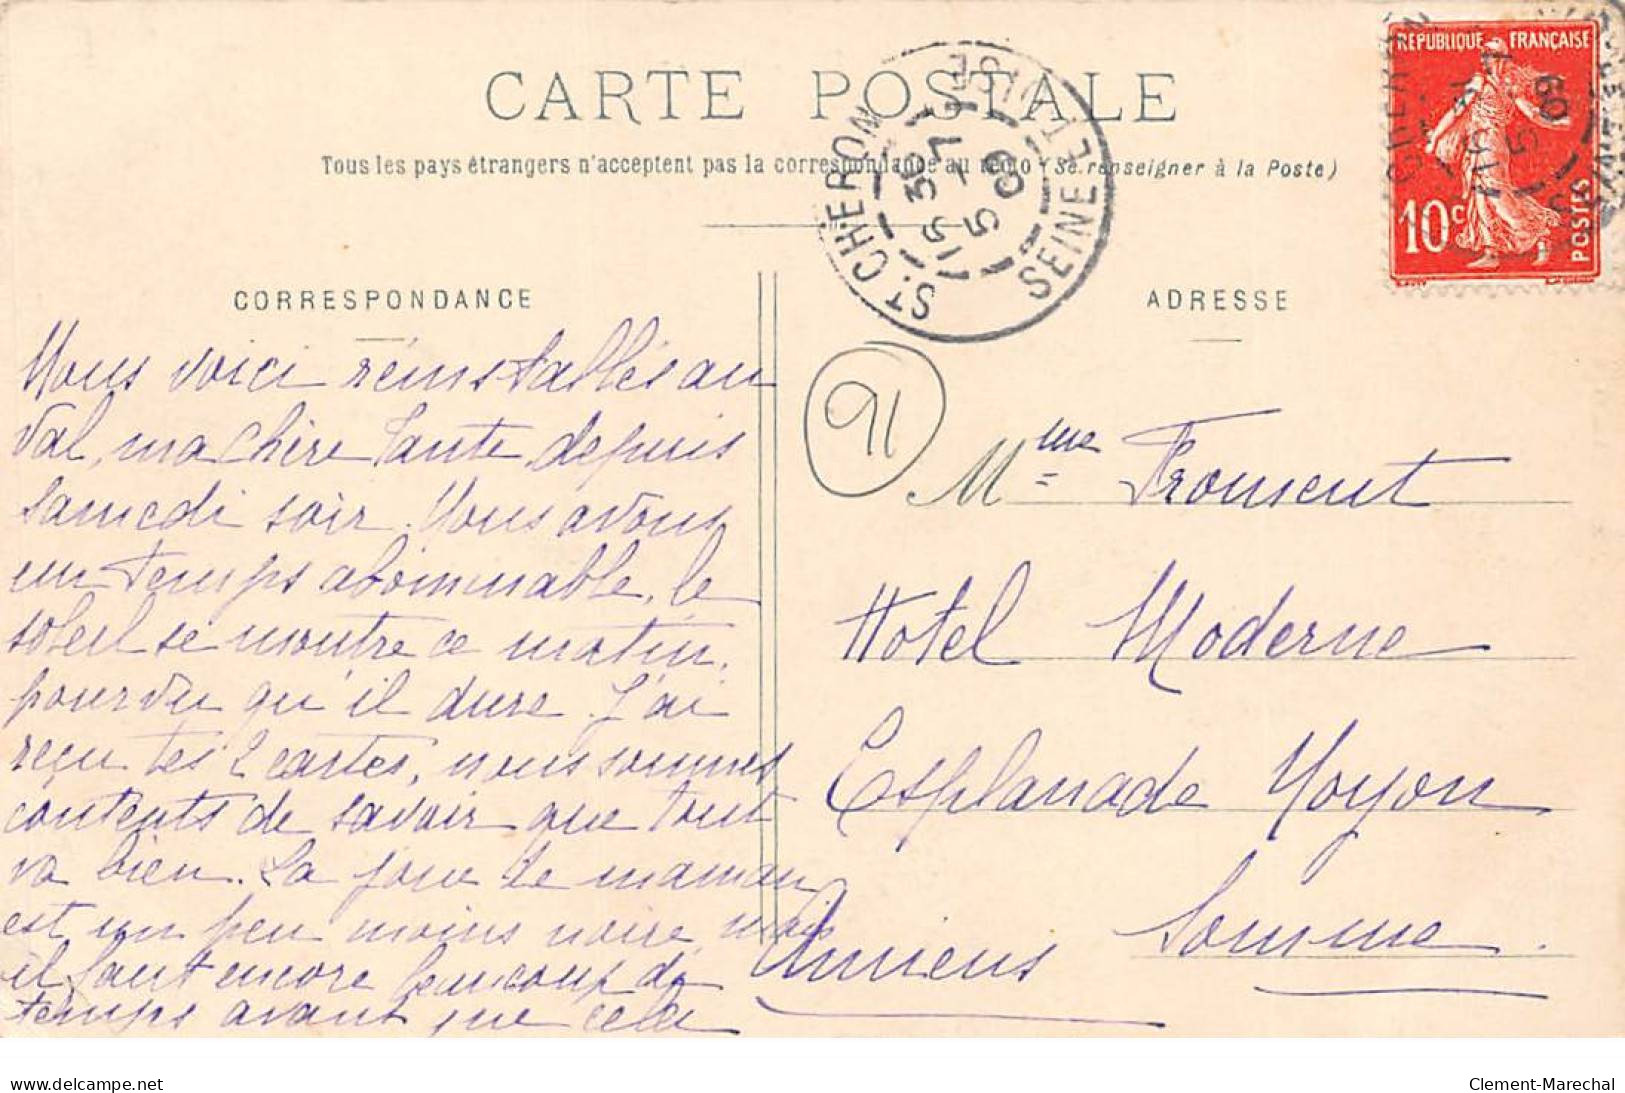 CARTE POSTALE
Tous les pays étrangers n'acceptent pas la correspondance au recto (Se renseigner à la Poste)
CORRESPONDANCE
Nous voici réinstallés au
Val, ma chère Tante, depuis
samedi soir. Nous avons
un temps abominable, le
soleil se montre ce matin,
pourvu qu'il dure. J'ai
reçu tes 2 cartes, nous sommes
contents de savoir que tout
va bien. La joue de maman
est un peu moins noire, mais
il faut encore beaucoup de
temps avant que cela
ADRESSE
91
Mme Froment
Hotel Moderne
Esplanade Noyon
Amiens Somme.
ST. CHERON
SEINE ET OISE
15 30
7 - 5
09
REPUBLIQUE FRANÇAISE
10c POSTES
delcampe.net
Clement-Marechal